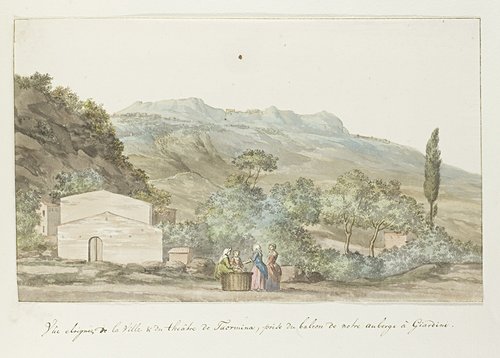 Vüe eloignée de la Ville & du théatre de Taormina, prise du balcon de notre auberge à Giardini.